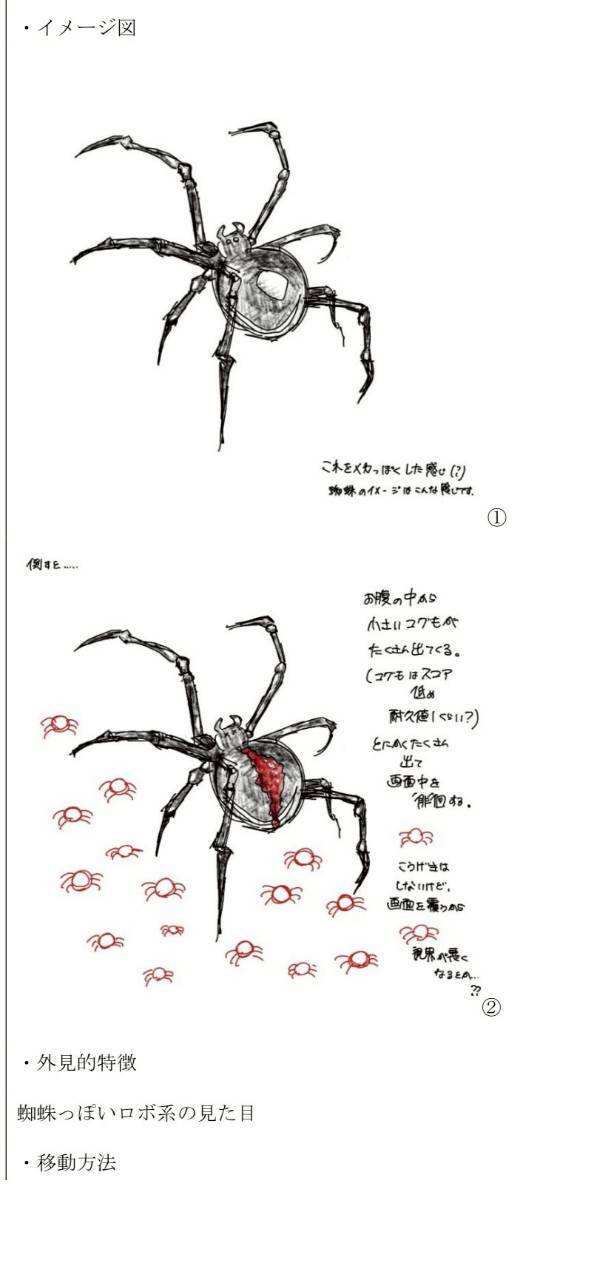 ・イメージ図
これをメカっぽくした感じ(?)
蜘蛛のイメージはこんな感じです。
①
倒すと.....
お腹の中から
小さいコグモが
たくさん出てくる。
(コグモはスコア
低め
耐久値1くらい?)
とにかくたくさん
出て
画面中を
徘徊する。
こうげきは
しないけど、
画面を覆うから
視界が悪く
なるとか...
??
②
・外見的特徴
蜘蛛っぽいロボ系の見た目
・移動方法